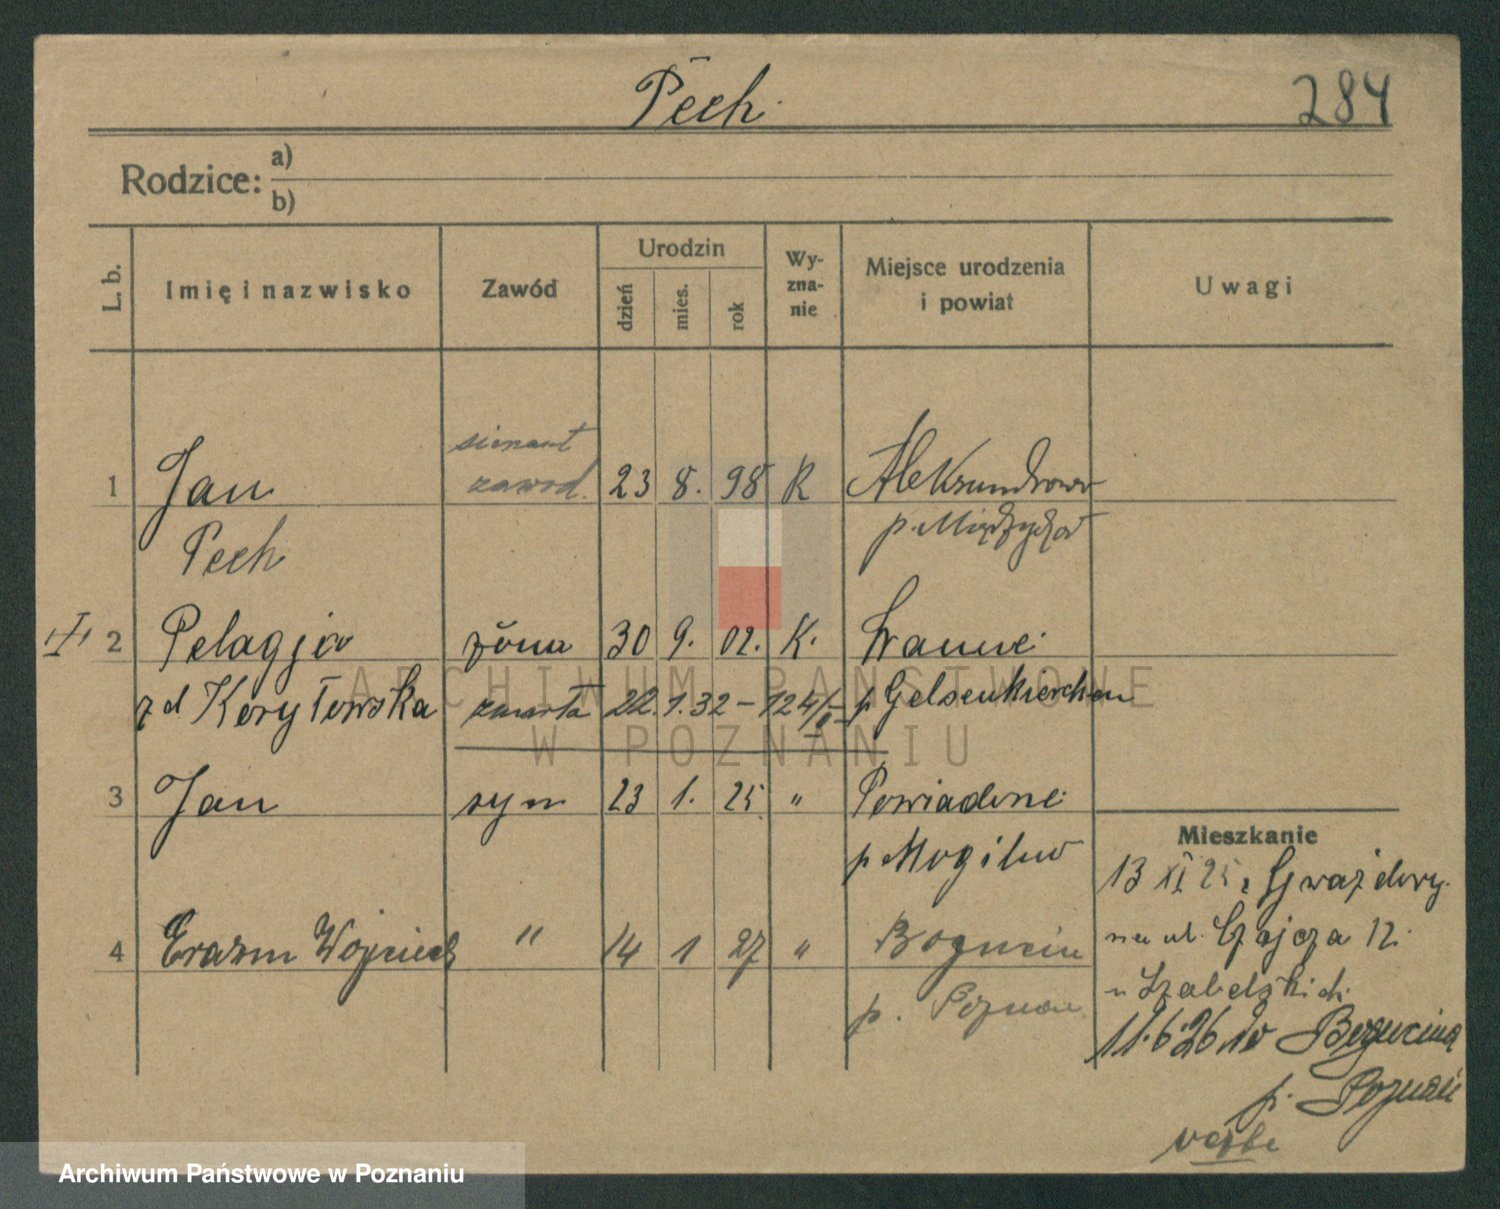 Pech
284
Rodzice: a)
b)
L. b.
Imię i nazwisko
Zawód
Urodzin
dzień
mies.
rok
Wy-
zna-
nie
Miejsce urodzenia
i powiat
Uwagi
sierżant
1 Jan zawod. 23 8. 98 R Aleksandrowo
Pech p. Międzychód
I 2 Pelagja żona 30 9. 02. K. Wanne
zd Koryłowska zmarła 22.1.32 – 124/II p Gelsenkirchen
3 Jan syn 23 1. 25 " Powiadone
p Mogilno
4 Erazm Wojciech " 14 1 27 " Bogucin
p. Poznań
Mieszkanie
13 XI 25 z
na ul. 12.
u
11.6.26 do Bogucina
p. Poznań
ARCHIWUM PAŃSTWOWE
W POZNANIU
Archiwum Państwowe w Poznaniu